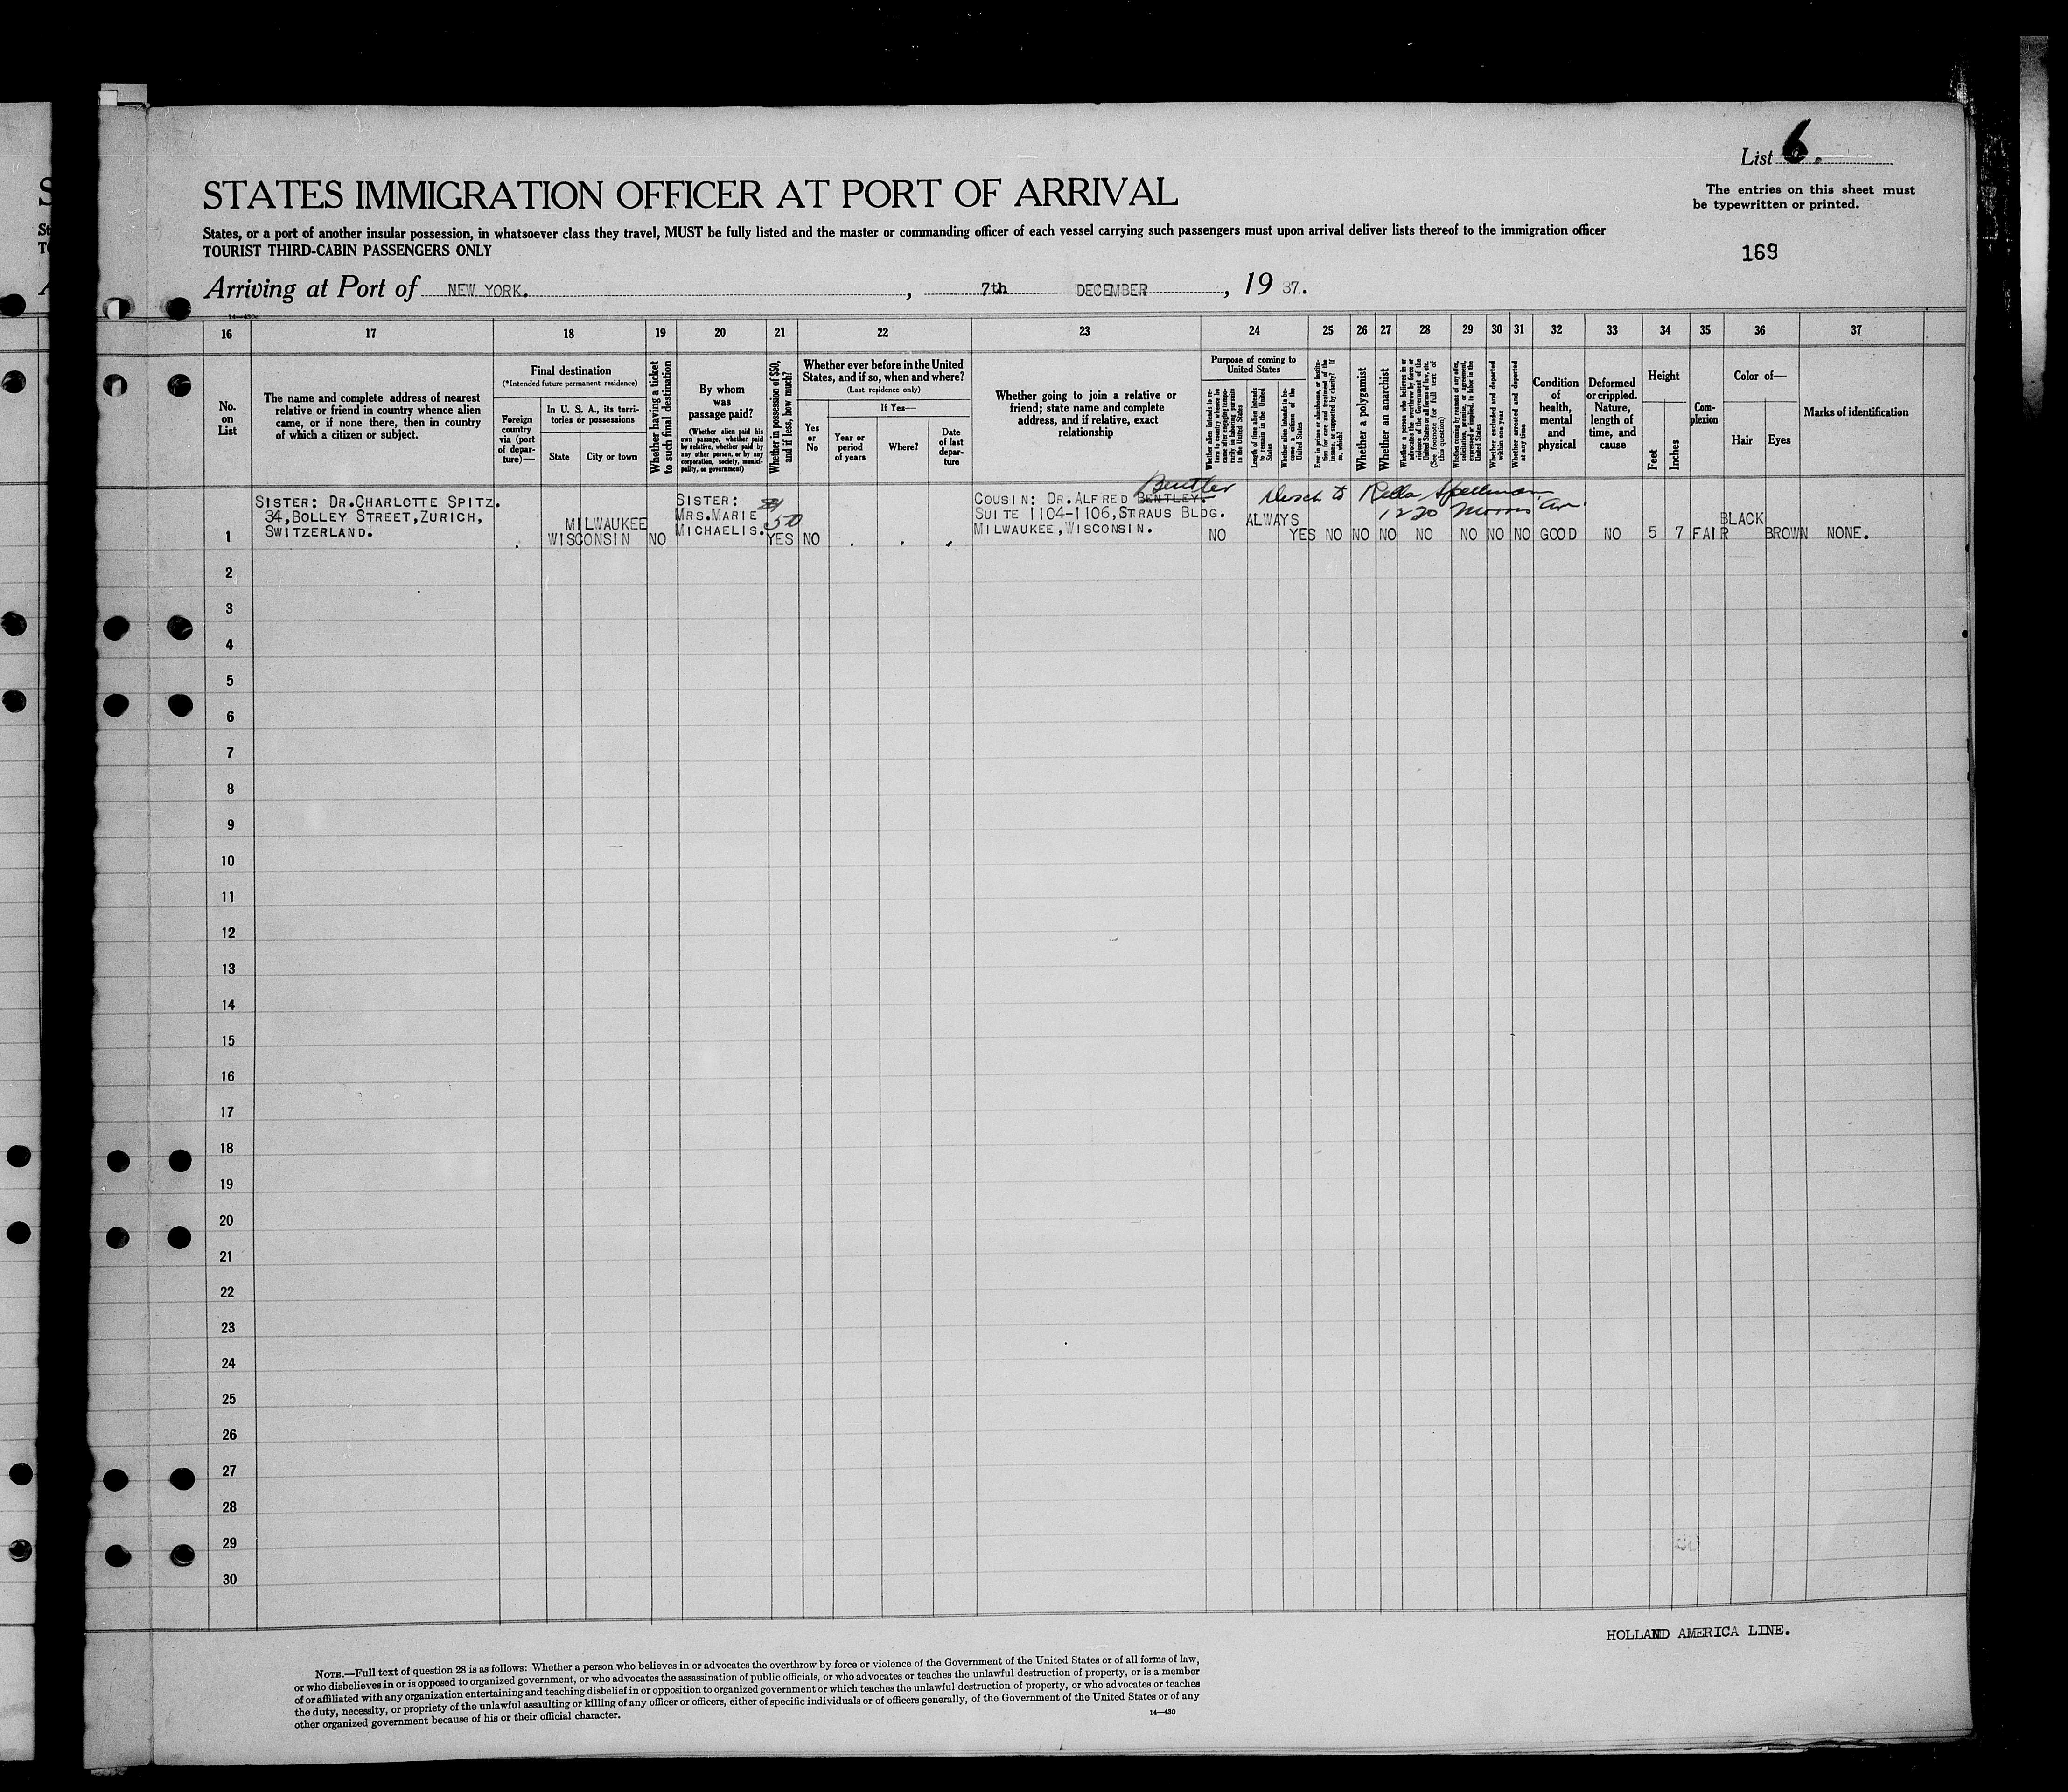 List 6.
The entries on this sheet must
be typewritten or printed.
169
STATES IMMIGRATION OFFICER AT PORT OF ARRIVAL
States, or a port of another insular possession, in whatsoever class they travel, MUST be fully listed and the master or commanding officer of each vessel carrying such passengers must upon arrival deliver lists thereof to the immigration officer
TOURIST THIRD-CABIN PASSENGERS ONLY
Arriving at Port of NEW YORK. , 7th DECEMBER , 19 37.
14-430
16 17 18 19 20 21 22 23 24 25 26 27 28 29 30 31 32 33 34 35 36 37
No.
on
List
The name and complete address of nearest
relative or friend in country whence alien
came, or if none there, then in country
of which a citizen or subject.
Final destination
(*Intended future permanent residence)
Foreign
country
via (port
of depar-
ture)—
In U. S. A., its terri-
tories or possessions
State
City or town
Whether having a ticket
to such final destination
By whom
was
passage paid?
(Whether alien paid his
own passage, whether paid
by relative, whether paid by
any other person, or by any
corporation, society, munici-
pality, or government)
Whether in possession of $50,
and if less, how much?
Whether ever before in the United
States, and if so, when and where?
(Last residence only)
Yes
or
No
If Yes—
Year or
period
of years
Where?
Date
of last
depar-
ture
Whether going to join a relative or
friend; state name and complete
address, and if relative, exact
relationship
Purpose of coming to
United States
Whether alien intends to re-
turn to country whence he
came after engaging tempo-
rarily in laboring pursuits
in the United States
Length of time alien intends
to remain in the United
States
Whether alien intends to be-
come a citizen of the
United States
Ever in prison or almshouse, or institu-
tion for care and treatment of the
insane, or supported by charity? If
so, which?
Whether a polygamist
Whether an anarchist
Whether a person who believes in or
advocates the overthrow by force or
violence of the Government of the
United States or all forms of law, etc.
(See footnote for full text of
this question)
Whether coming by reasons of any offer,
solicitation, promise, or agreement,
expressed or implied, to labor in the
United States
Whether excluded and deported
within one year
Whether arrested and deported
at any time
Condition
of
health,
mental
and
physical
Deformed
or crippled.
Nature,
length of
time, and
cause
Height
Feet
Inches
Com-
plexion
Color of—
Hair
Eyes
Marks of identification
1
SISTER: DR.CHARLOTTE SPITZ.
34,BOLLEY STREET,ZURICH,
SWITZERLAND.
MILWAUKEE
WISCONSIN
NO
SISTER:
MRS.MARIE
MICHAELIS.
50
YES
NO
Bentler
COUSIN: DR.ALFRED BENTLEY.
SUITE 1104-1106,STRAUS BLDG.
MILWAUKEE,WISCONSIN.
to Rella Spellman
1220 Morris Av.
NO ALWAYS YES NO NO NO NO NO NO NO GOOD NO 5 7 FAIR BLACK BROWN NONE.
2
3
4
5
6
7
8
9
10
11
12
13
14
15
16
17
18
19
20
21
22
23
24
25
26
27
28
29
30
HOLLAND AMERICA LINE.
NOTE.—Full text of question 28 is as follows: Whether a person who believes in or advocates the overthrow by force or violence of the Government of the United States or of all forms of law,
or who disbelieves in or is opposed to organized government, or who advocates the assassination of public officials, or who advocates or teaches the unlawful destruction of property, or is a member
of or affiliated with any organization entertaining and teaching disbelief in or opposition to organized government or which teaches the unlawful destruction of property, or who advocates or teaches
the duty, necessity, or propriety of the unlawful assaulting or killing of any officer or officers, either of specific individuals or of officers generally, of the Government of the United States or of any
other organized government because of his or their official character.
14—430